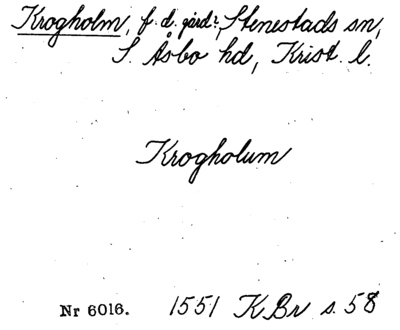 Krogholm, f. d. gård?, Stenestads sn,
S. Åsbo hd, Krist. l.
Krogholum
Nr 6016. 1551 K Br s. 58